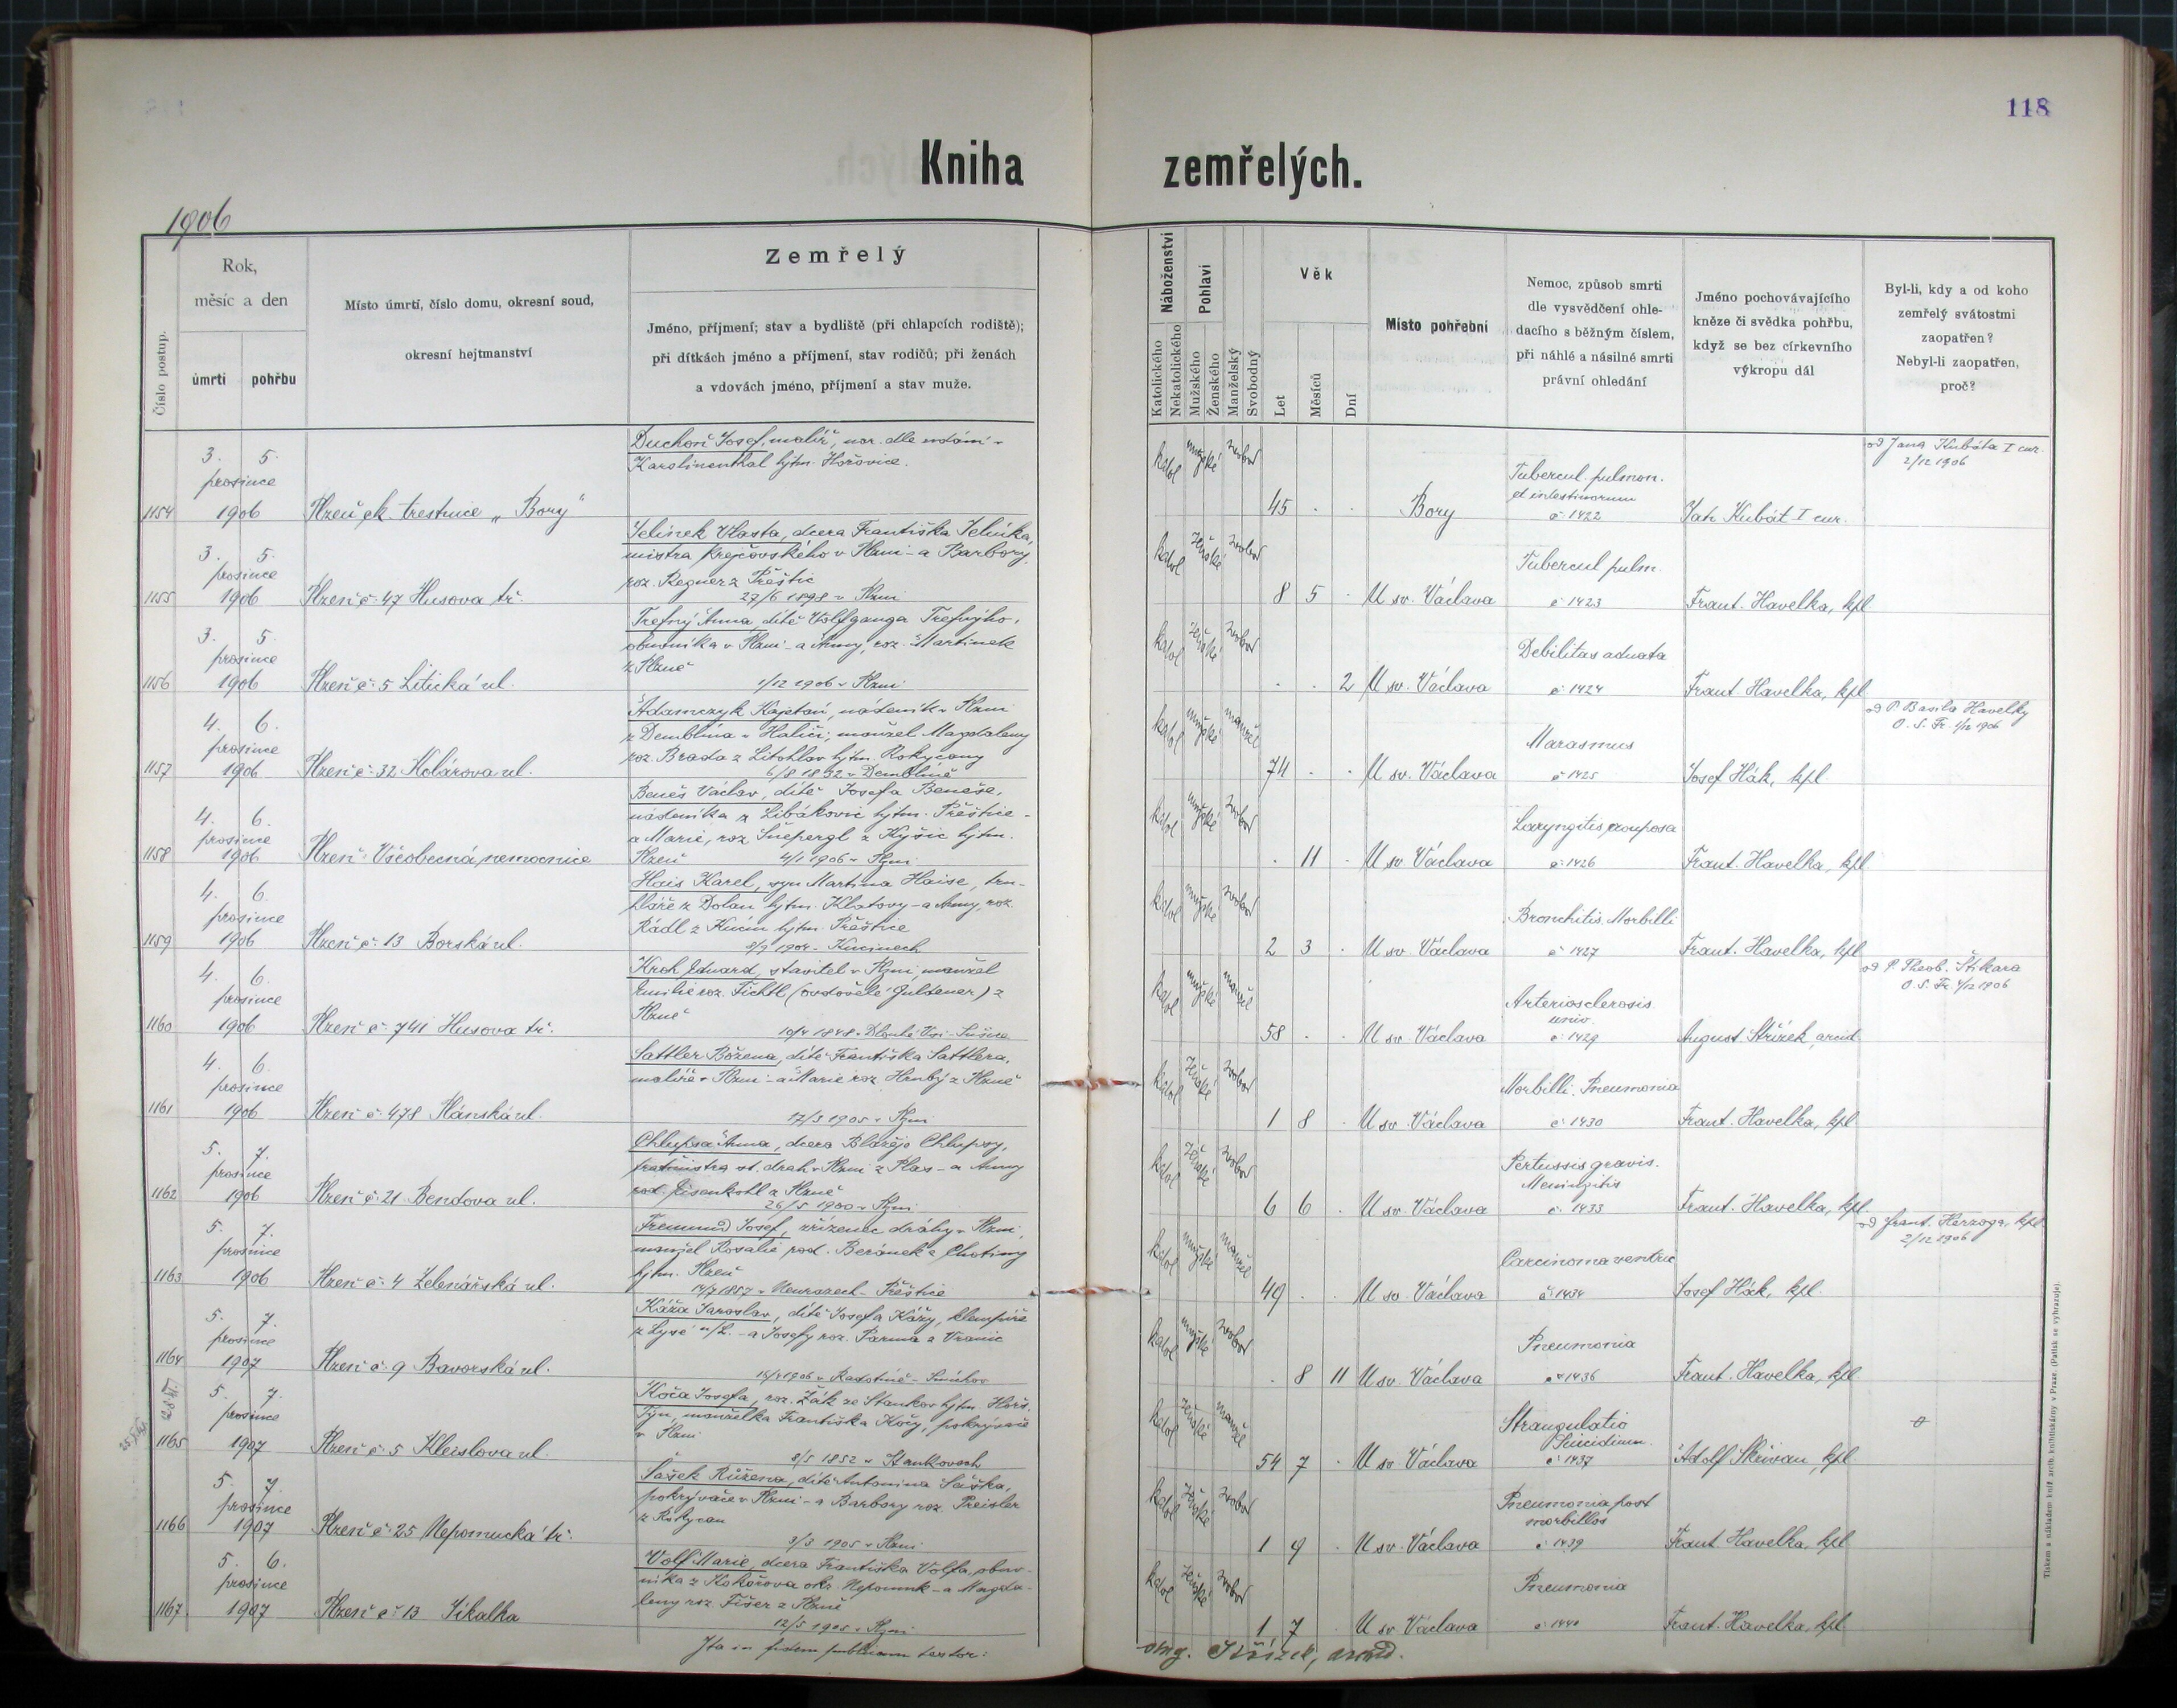 118
Kniha zemřelých.
1906
Číslo postup.
Rok, měsíc a den
úmrtí
pohřbu
Místo úmrtí, číslo domu, okresní soud,
okresní hejtmanství
Zemřelý
Jméno, příjmení; stav a bydliště (při chlapcích rodiště);
při dítkách jméno a příjmení, stav rodičů; při ženách
a vdovách jméno, příjmení a stav muže.
Náboženství
Katolického
Nekatolického
Pohlaví
Mužského
Ženského
Manželský
Svobodný
Věk
Let
Měsíců
Dní
Místo pohřební
Nemoc, způsob smrti
dle vysvědčení ohle-
dacího s běžným číslem,
při náhlé a násilné smrti
právní ohledání
Jméno pochovávajícího
kněze či svědka pohřbu,
když se bez církevního
výkropu dál
Byl-li, kdy a od koho
zemřelý svátostmi
zaopatřen?
Nebyl-li zaopatřen,
proč?
1154
3. 5.
prosince
1906
Plzeň ck. trestnice „Bory"
Duchoň Josef, malíř, nar. dle udání v
Karolinenthal hjtm. Hořovice.
katol mužské svobod
45 . .
Bory
Tubercul. pulmon.
et intestinorum
č. 1422
Jan Kubát I cur.
od Jana Kubáta I cur.
2/12 1906
1155
3. 5.
prosince
1906
Plzeň č. 47 Husova tř.
Jelínek Vlasta, dcera Františka Jelínka,
mistra krejčovského v Plzni - a Barbory,
roz. Regner z Přeštic
27/6 1898 v Plzni
katol ženské svobod
8 5 .
U sv. Václava
Tubercul pulm.
č. 1423
Frant. Havelka, kpl
1156
3. 5.
prosince
1906
Plzeň č. 5 Litická ul.
Trefný Anna, dítě Wolfganga Trefného,
obuvníka v Plzni - a Anny, roz. Martinek
z Plzně
1/12 1906 v Plzni
katol ženské svobod
. . 2
U sv. Václava
Debilitas adnata
č. 1424
Frant. Havelka, kpl
1157
4. 6.
prosince
1906
Plzeň č. 32 Kolárova ul.
Adamczyk Kajetan, nádeník v Plzni
z Demblína v Haliči, manžel Magdaleny
roz. Brada z Litohlav hjtm. Rokycany
6/8 1832 v Demblíně
katol mužské manžel
74 . .
U sv. Václava
Marasmus
č. 1425
Josef Hák, kpl
od P. Basila Havelky
O. S. Fr. 1/12 1906
1158
4. 6.
prosince
1906
Plzeň Všeobecná nemocnice
Beneš Václav, dítě Josefa Beneše,
nádeníka z Libákovic hjtm. Přeštice -
a Marie, roz Šnepergl z Kyšic hjtm.
Plzeň 4/1 1906 v Plzni
katol mužské svobod
. 11 .
U sv. Václava
Laryngitis crouposa
č. 1426
Frant. Havelka, kpl
1159
4. 6.
prosince
1906
Plzeň č. 13 Borská ul.
Hais Karel, syn Martina Haise, tru-
hláře z Dolan hjtm. Klatovy - a Anny, roz.
Rádl z Kucín hjtm. Přeštice
8/9 1904 v Kucinech
katol mužské svobod
2 3 .
U sv. Václava
Bronchitis. Morbilli
č. 1427
Frant. Havelka, kpl
1160
4. 6.
prosince
1906
Plzeň č. 741 Husova tř.
Kroh Eduard, stavitel v Plzni, manžel
Emilie roz. Fichtl (ovdovělé Guldener) z
Plzně
10/4 1848 v Dlouhé Vsi - Sušice
katol mužské manžel
58 . .
U sv. Václava
Arteriosclerosis
univ.
č. 1429
August. Střížek, arcid.
od P. Theob. Štikara
O. S. Fr. 4/12 1906
1161
4. 6.
prosince
1906
Plzeň č. 478 Plánská ul.
Sattler Božena, dítě Františka Sattlera,
malíře v Plzni - a Marie roz. Hrubý z Plzně
17/3 1905 v Plzni
katol ženské svobod
1 8 .
U sv. Václava
Morbilli. Pneumonia
č. 1430
Frant. Havelka, kpl
1162
5. 7.
prosince
1906
Plzeň č. 21 Bendova ul.
Chlupsa Anna, dcera Blažeje Chlupsy,
st. drah v Plzni z Plas - a Anny
rod. Eisenkohl z Plzně
26/5 1900 v Plzni
katol ženské svobod
6 6 .
U sv. Václava
Pertussis gravis.
Meningitis
č. 1433
Frant. Havelka, kpl.
1163
5. 7.
prosince
1906
Plzeň č. 4 Zelenářská ul.
Fremund Josef, zřízenec dráhy v Plzni,
manžel Rosalie rod. Beránek z Chotiny
hjtm. Plzeň
14/7 1857 v Neurazech - Přeštice
katol mužské manžel
49 . .
U sv. Václava
Carcinoma ventric
č. 1434
Josef Hák, kpl.
od Frant. Herzoga, kpl
2/12 1906
1164
5. 7.
prosince
1907
Plzeň č. 9 Bavorská ul.
Káža Jaroslav, dítě Josefa Kážy, klempíře
z Lysé n/L. - a Josefy roz. Parma z Vranic
16/4 1906 v Radotíně - Smíchov
katol mužské svobod
. 8 11
U sv. Václava
Pneumonia
č. 1436
Frant. Havelka, kpl
1165
5. 7.
prosince
1907
Plzeň č. 5 Kleislova ul.
Koča Josefa, roz. Žák ze Stankov hjtm. Horš.
Týn, manželka Františka Kočy, pokrývače
v Plzni
8/5 1852 v Stankovech
katol ženské manžel
54 7 .
U sv. Václava
Strangulatio
Suicidium.
č. 1437
Adolf Skřivan, kpl
1166
5. 7.
prosince
1907
Plzeň č. 25 Nepomucká tř.
Sašek Růžena, dítě Antonína Saška,
pokrývače v Plzni - a Barbory roz. Preisler
z Rokycan
3/3 1905 v Plzni
katol ženské svobod
1 9 .
U sv. Václava
Pneumonia post
morbillos
č. 1439
Frant. Havelka, kpl
1167
5. 6.
prosince
1907
Plzeň č. 13 Sikalka
Volf Marie, dcera Františka Volfa, obuv-
níka z Kokořova okr. Nepomuk - a Magda-
leny roz. Fišer z Plzně
12/5 1905 v Plzni
katol ženské svobod
1 7 .
U sv Václava
Pneumonia
č. 1440
Frant. Havelka, kpl
Ita in fidem publicam testor:
Aug. Střížek, arcid.